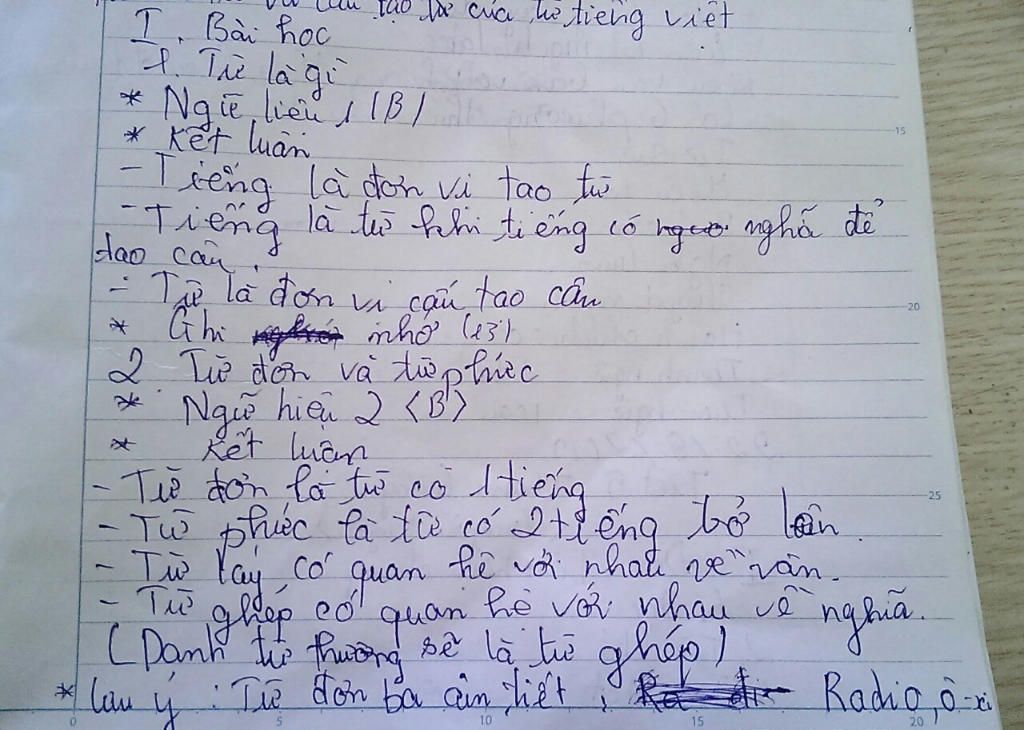 và cấu tạo từ của từ tiếng việt
I. Bài học
1. Từ là gì
* Ngữ liệu 1 (B)
* Kết luận
- Tiếng là đơn vi tao từ
- Tiếng là từ khi tiếng có nghã để
tao câu.
- Từ là đơn vi cấu tao câu
* Ghi nhớ (13)
2 Từ đơn và từ phức
* Ngữ hiệu 2 <B>
* Kết luân
- Từ đơn là từ có 1 tiếng
- Từ phức là từ có 2 tiếng trở lên.
- Từ láy có quan hê với nhau về vân.
- Từ ghép có quan hê với nhau về nghĩa.
(Danh từ thường sẽ là từ ghép)
* lưu ý : Từ đơn đa âm tiết : Radio, ô-xi
15
20
25
0 5 10 15 20